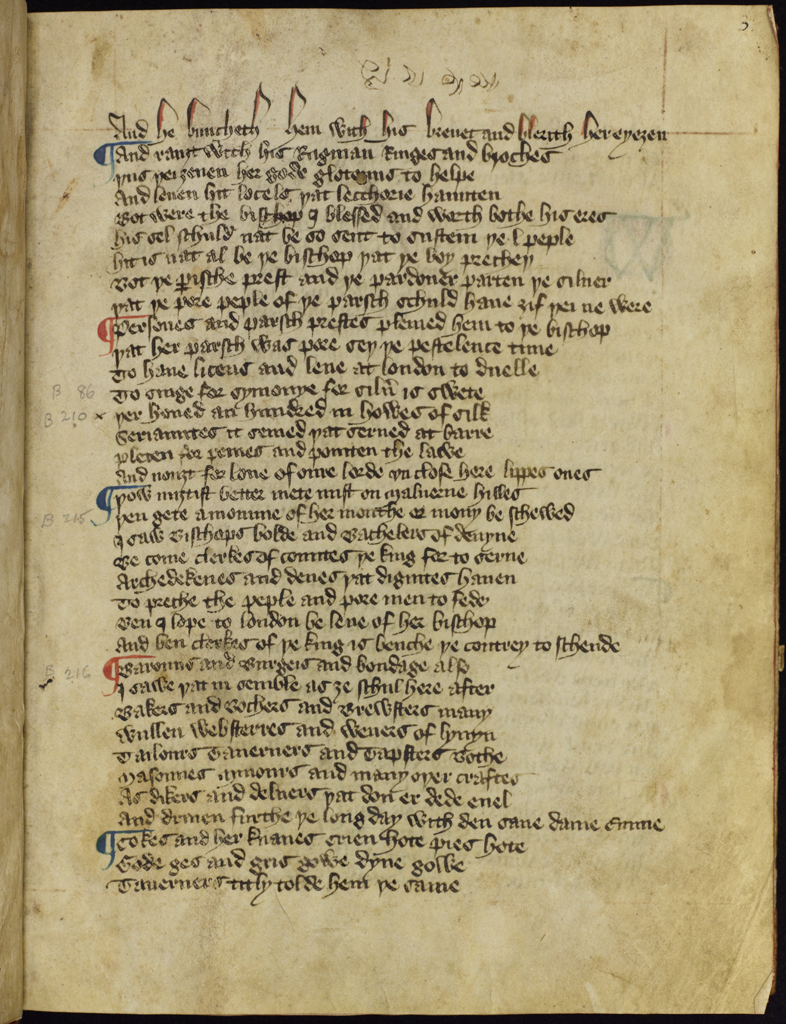 3
And he buncheth hem with his brevet and blerith her eyezen
And rauȝt with his Ragman Ringes and broches
þus þei ȝeuen her gode glotenus to helpe
And leuen hit losels þat lecchorie haunten
Bot were the bisshop I blessed and worth bothe his eres
his sel schuld nat be so sent to susteni þe peple
hit is nat al be þe bischop þat þe boy precheþ
Bot þe parische prest and þe pardoner parten þe siluer
þat þe pore peple of þe parsch schuld haue ȝif þei ne were
Persones and parsch prestes pleined hem to þe bischop
þat her parsch was pore sey þe pestelence time
To haue licens and leue at london to duelle
B 86 To singe for symonye for siluer is swete
B 210 x þer houed an hundred in howes of silk
Seriauntes it semed þat serued at barre
pleten for penies and pointen the lawe
And nouȝt for loue of oure lorde vn close here lippes ones
þow miȝtist better mete mist on maluerne hilles
B 215 þen gete a momme of her mouthe er mony be schewed
I saw Bischops bolde and Bachelers of deuyne
Be come clerkes of countes þe king for to serue
Archedekenes and denes þat dignites hauen
To preche the peple and pore men to fede
Ben I lope to london be leue of her bischop
And ben clerkes of þe king is benche þe contrey to schende
B 216 Barouns and Burgeis and bondage also
I sawe þat in semble as ȝe schul here after
Bakers and Bochers and Brewsters many
wullen websterres and weuers of lynyn
Tailours Tauerners and Tapsters Bothe
Masonnes minours and many oþer craftes
As dikers and deluers þat don er dede euel
And driuen furthe þe long day with deu saue dame Emme
Cokes and her knaues crien hote pies hote
Gode ges and gris gowe dyne gowe
Tauerners tithy tolde hem þe same